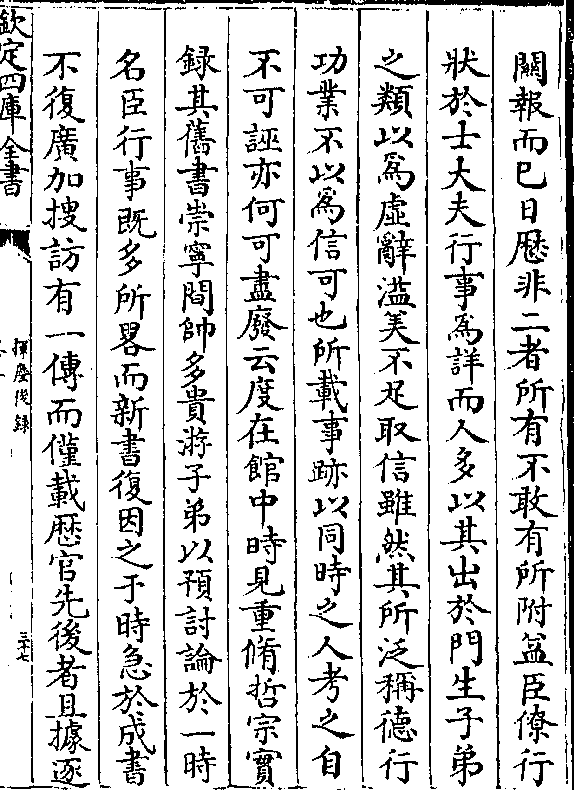 關報而已日厯非二者所有不敢有所附益臣僚行
狀於士大夫行事爲詳而人多以其出於門生子弟
之類以爲虛辭溢美不足取信雖然其所泛稱德行
功業不以爲信可也所載事跡以同時之人考之自
不可誣亦何可盡廢云度在館中時見重脩哲宗實
録其舊書崇寧間帥多貴游子弟以預討論於一時
名臣行事既多所畧而新書復因之于時急於成書
不復廣加搜訪有一傳而僅載厯官先後者且據逐
欽定四庫全書
揮麈後録
三十七